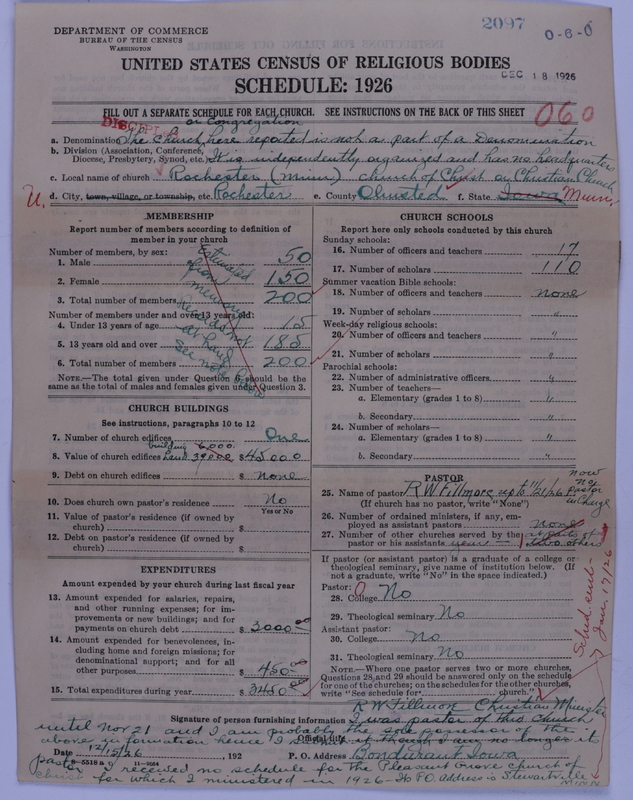 2097
0-6-0
DEPARTMENT OF COMMERCE
BUREAU OF THE CENSUS
WASHINGTON
UNITED STATES CENSUS OF RELIGIOUS BODIES
DEC 18 1926
SCHEDULE: 1926
FILL OUT A SEPARATE SCHEDULE FOR EACH CHURCH. SEE INSTRUCTIONS ON THE BACK OF THIS SHEET
060
or Congregation
a. Denomination The Church here reported is not a part of a Denomination
b. Division (Association, Conference,
Diocese, Presbytery, Synod, etc.) It is independently organized and has no headquarters
c. Local name of church Rochester (Minn) church of Christ or Christian Church
U. d. City, town, village, or township, etc. Rochester e. County Olmsted f. State Iowa Minn.
MEMBERSHIP
Report number of members according to definition of
member in your church
Number of members, by sex:
1. Male 50
2. Female 150
3. Total number of members 200
Number of members under and over 13 years old:
4. Under 13 years of age 15
5. 13 years old and over 185
6. Total number of members 200
Estimated
from
memory
at hand
See note
NOTE.—The total given under Question 6 should be the
same as the total of males and females given under Question 3.
CHURCH BUILDINGS
See instructions, paragraphs 10 to 12
7. Number of church edifices One
building 6,000.
8. Value of church edifices Land 39000 $45000
9. Debt on church edifices $ None
10. Does church own pastor's residence No
Yes or No
11. Value of pastor's residence (if owned by
church) $
12. Debt on pastor's residence (if owned by
church) $
EXPENDITURES
Amount expended by your church during last fiscal year
13. Amount expended for salaries, repairs,
and other running expenses; for im-
provements or new buildings; and for
payments on church debt $ 3000 00
14. Amount expended for benevolences, in-
cluding home and foreign missions; for
denominational support; and for all
other purposes $ 450 00
15. Total expenditures during year $ 3450
CHURCH SCHOOLS
Report here only schools conducted by this church
Sunday schools:
16. Number of officers and teachers 17
17. Number of scholars 110
Summer vacation Bible schools:
18. Number of officers and teachers none
19. Number of scholars "
Week-day religious schools:
20. Number of officers and teachers "
21. Number of scholars "
Parochial schools:
22. Number of administrative officers "
23. Number of teachers—
a. Elementary (grades 1 to 8) "
b. Secondary "
24. Number of scholars—
a. Elementary (grades 1 to 8) "
b. Secondary "
PASTOR
25. Name of pastor R W Fillmore up to 11/21/26
now
no
Pastor
in Charge
(If church has no pastor, write "None")
26. Number of ordained ministers, if any, em-
ployed as assistant pastors None
27. Number of other churches served by the
pastor or his assistants year — two others
If pastor (or assistant pastor) is a graduate of a college or
theological seminary, give name of institution below. (If
not a graduate, write "No" in the space indicated.)
Pastor:
28. College No
29. Theological seminary No
Assistant pastor:
30. College No
31. Theological seminary No
NOTE.—Where one pastor serves two or more churches,
Questions 28 and 29 should be answered only on the schedule
for one of the churches; on the schedules for the other churches,
write "See schedule for church."
Sched. sent
Jan. 17/26
R W Fillmore Christian Minister
Signature of person furnishing information I was pastor of this Church
until Nov 21 and I am probably the sole possessor of the
above information hence I
Official title
Date 12/15/26, 192 P. O. Address Bondurant Iowa
8—5518 a 11—9164
pastor I received no schedule for the Pleasant Grove church of
Christ for which I ministered in 1926 - Its PO. address is Stewartville
Minn